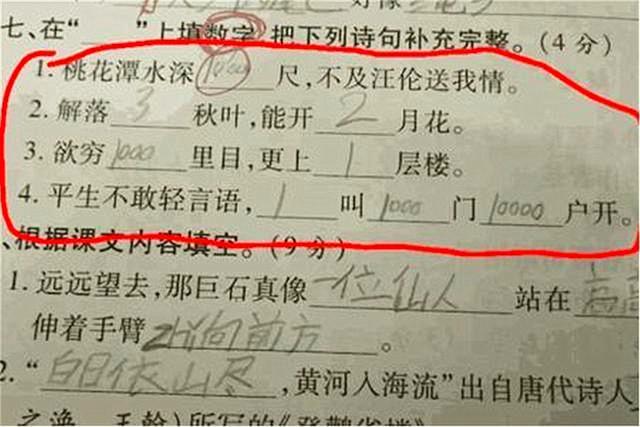 七、在“____”上填数字,把下列诗句补充完整。(4分)
1. 桃花潭水深1000尺,不及汪伦送我情。
2. 解落3秋叶,能开2月花。
3. 欲穷1000里目,更上1层楼。
4. 平生不敢轻言语,1叫1000门10000户开。
、根据课文内容填空。(9分)
1. 远远望去,那巨石真像一位仙人站在高高
伸着手臂指向前方。
2. “白日依山尽,黄河入海流”出自唐代诗人
之涣 王翰)所写的《登鹳雀楼》